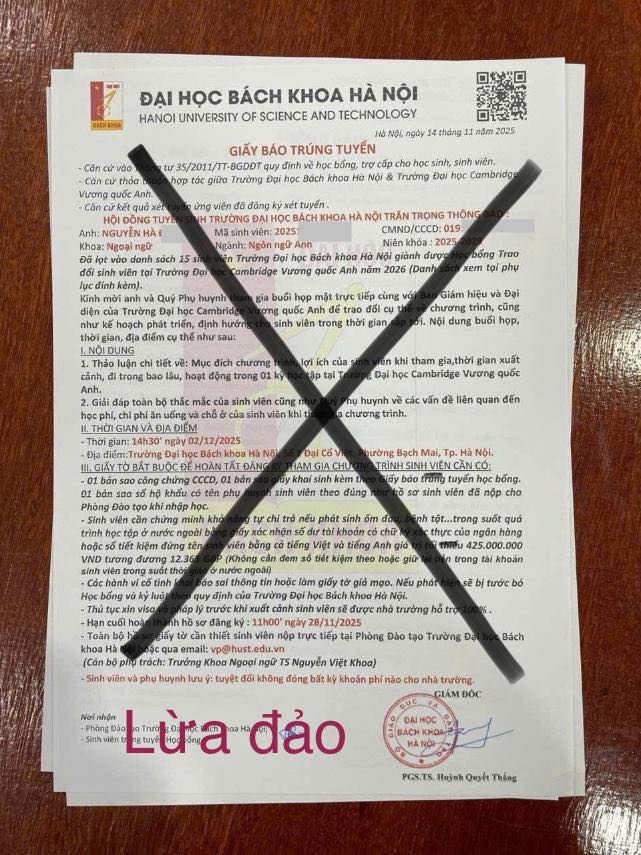 ĐẠI HỌC
BÁCH KHOA
ĐẠI HỌC BÁCH KHOA HÀ NỘI
HANOI UNIVERSITY OF SCIENCE AND TECHNOLOGY
Hà Nội, ngày 14 tháng 11 năm 2025
GIẤY BÁO TRÚNG TUYỂN
- Căn cứ vào Thông tư 35/2011/TT-BGDĐT quy định về học bổng, trợ cấp cho học sinh, sinh viên.
- Căn cứ thỏa thuận hợp tác giữa Trường Đại học Bách khoa Hà Nội & Trường Đại học Cambridge
Vương quốc Anh.
- Căn cứ kết quả xét tuyển ứng viên đã đăng ký xét tuyển .
HỘI ĐỒNG TUYỂN SINH TRƯỜNG ĐẠI HỌC BÁCH KHOA HÀ NỘI TRÂN TRỌNG THÔNG BÁO :
Anh: NGUYỄN HÀ Mã sinh viên: 2025 CMND/CCCD: 019
Khoa: Ngoại ngữ Ngành: Ngôn ngữ Anh Niên khóa : 2025-2029
Đã lọt vào danh sách 15 sinh viên Trường Đại học Bách khoa Hà Nội giành được Học bổng Trao
đổi sinh viên tại Trường Đại học Cambridge Vương quốc Anh năm 2026 (Danh sách xem tại phụ
lục đính kèm).
Kính mời anh và Quý Phụ huynh tham gia buổi họp mặt trực tiếp cùng với Ban Giám hiệu và Đại
diện của Trường Đại học Cambridge Vương quốc Anh để trao đổi cụ thể về chương trình, cũng
như kế hoạch phát triển, định hướng cho sinh viên trong thời gian sắp tới. Nội dung buổi họp,
thời gian, địa điểm cụ thể như sau:
I. NỘI DUNG
1. Thảo luận chi tiết về: Mục đích chương trình, lợi ích của sinh viên khi tham gia,thời gian xuất
cảnh, đi trong bao lâu, hoạt động trong 01 kỳ học tập tại Trường Đại học Cambridge Vương quốc
Anh.
2. Giải đáp toàn bộ thắc mắc của sinh viên cũng như Quý Phụ huynh về các vấn đề liên quan đến
học phí, chi phí ăn uống và chỗ ở của sinh viên khi tham gia chương trình.
II. THỜI GIAN VÀ ĐỊA ĐIỂM
- Thời gian: 14h30' ngày 02/12/2025
- Địa điểm:Trường Đại học Bách khoa Hà Nội, Số 1 Đại Cồ Việt, Phường Bạch Mai, Tp. Hà Nội.
III. GIẤY TỜ BẮT BUỘC ĐỂ HOÀN TẤT ĐĂNG KÝ THAM GIA CHƯƠNG TRÌNH SINH VIÊN CẦN CÓ:
- 01 bản sao công chứng CCCD, 01 bản sao giấy khai sinh kèm theo Giấy báo trúng tuyển học bổng.
01 bản sao sổ hộ khẩu có tên phụ huynh sinh viên theo đúng như hồ sơ sinh viên đã nộp cho
Phòng Đào tạo khi nhập học.
- Sinh viên cần chứng minh khả năng tự chi trả nếu phát sinh ốm đau, bệnh tật...trong suốt quá
trình học tập ở nước ngoài bằng giấy xác nhận số dư tài khoản có chữ ký xác thực của ngân hàng
hoặc sổ tiết kiệm đứng tên sinh viên bằng cả tiếng Việt và tiếng Anh giá trị tối thiểu 425.000.000
VND tương đương 12.365 GBP (Không cần đem sổ tiết kiệm theo hoặc giữ lại tiền trong tài khoản
sinh viên trong suốt thời gian ở nước ngoài)
- Các hành vi cố tình khai báo sai thông tin hoặc làm giấy tờ giả mạo. Nếu phát hiện sẽ bị tước bỏ
Học bổng và kỷ luật theo quy định của Trường Đại học Bách khoa Hà Nội.
- Thủ tục xin visa và pháp lý trước khi xuất cảnh sinh viên sẽ được nhà trường hỗ trợ 100% .
- Hạn cuối hoàn thành hồ sơ đăng ký : 11h00' ngày 28/11/2025
- Toàn bộ hồ sơ giấy tờ cần thiết sinh viên nộp trực tiếp tại Phòng Đào tạo Trường Đại học Bách
khoa Hà Nội hoặc qua email: vp@hust.edu.vn
(Cán bộ phụ trách: Trưởng Khoa Ngoại ngữ TS Nguyễn Việt Khoa)
- Sinh viên và phụ huynh lưu ý: tuyệt đối không đóng bất kỳ khoản phí nào cho nhà trường.
GIÁM ĐỐC
Nơi nhận
- Phòng Đào tạo Trường Đại học Bách khoa Hà Nội;
- Sinh viên trúng tuyển Học bổng
Lừa đảo
BỘ GIÁO DỤC VÀ ĐÀO TẠO
ĐẠI HỌC
BÁCH KHOA
HÀ NỘI
PGS.TS. Huỳnh Quyết Thắng